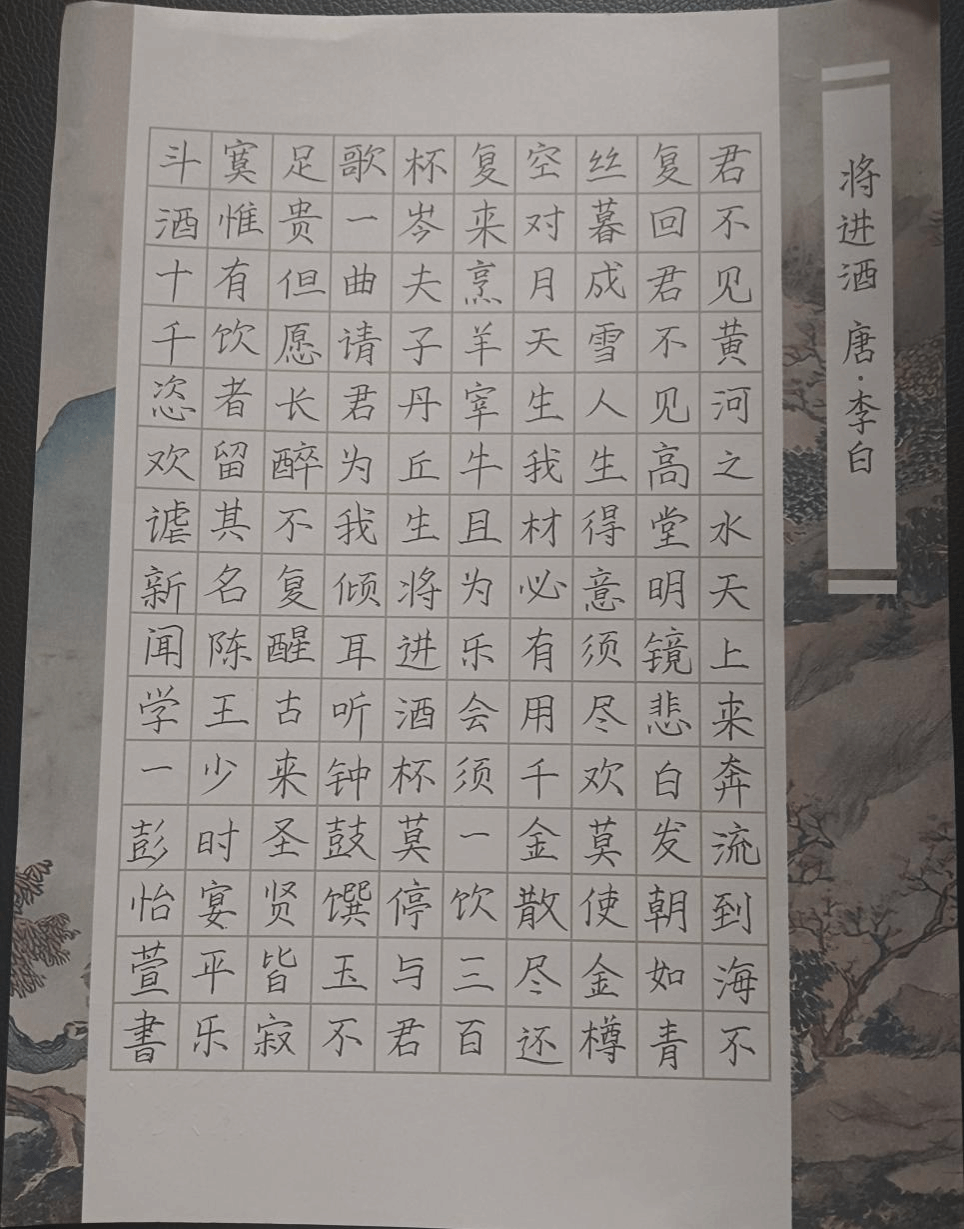 将进酒 唐·李白
君不见黄河之水天上来奔流到海不
复回君不见高堂明镜悲白发朝如青
丝暮成雪人生得意须尽欢莫使金樽
空对月天生我材必有用千金散尽还
复来烹羊宰牛且为乐会须一饮三百
杯岑夫子丹丘生将进酒杯莫停与君
歌一曲请君为我倾耳听钟鼓馔玉不
足贵但愿长醉不复醒古来圣贤皆寂
寞惟有饮者留其名陈王少时宴平乐
斗酒十千恣欢谑新闻学一彭怡萱書